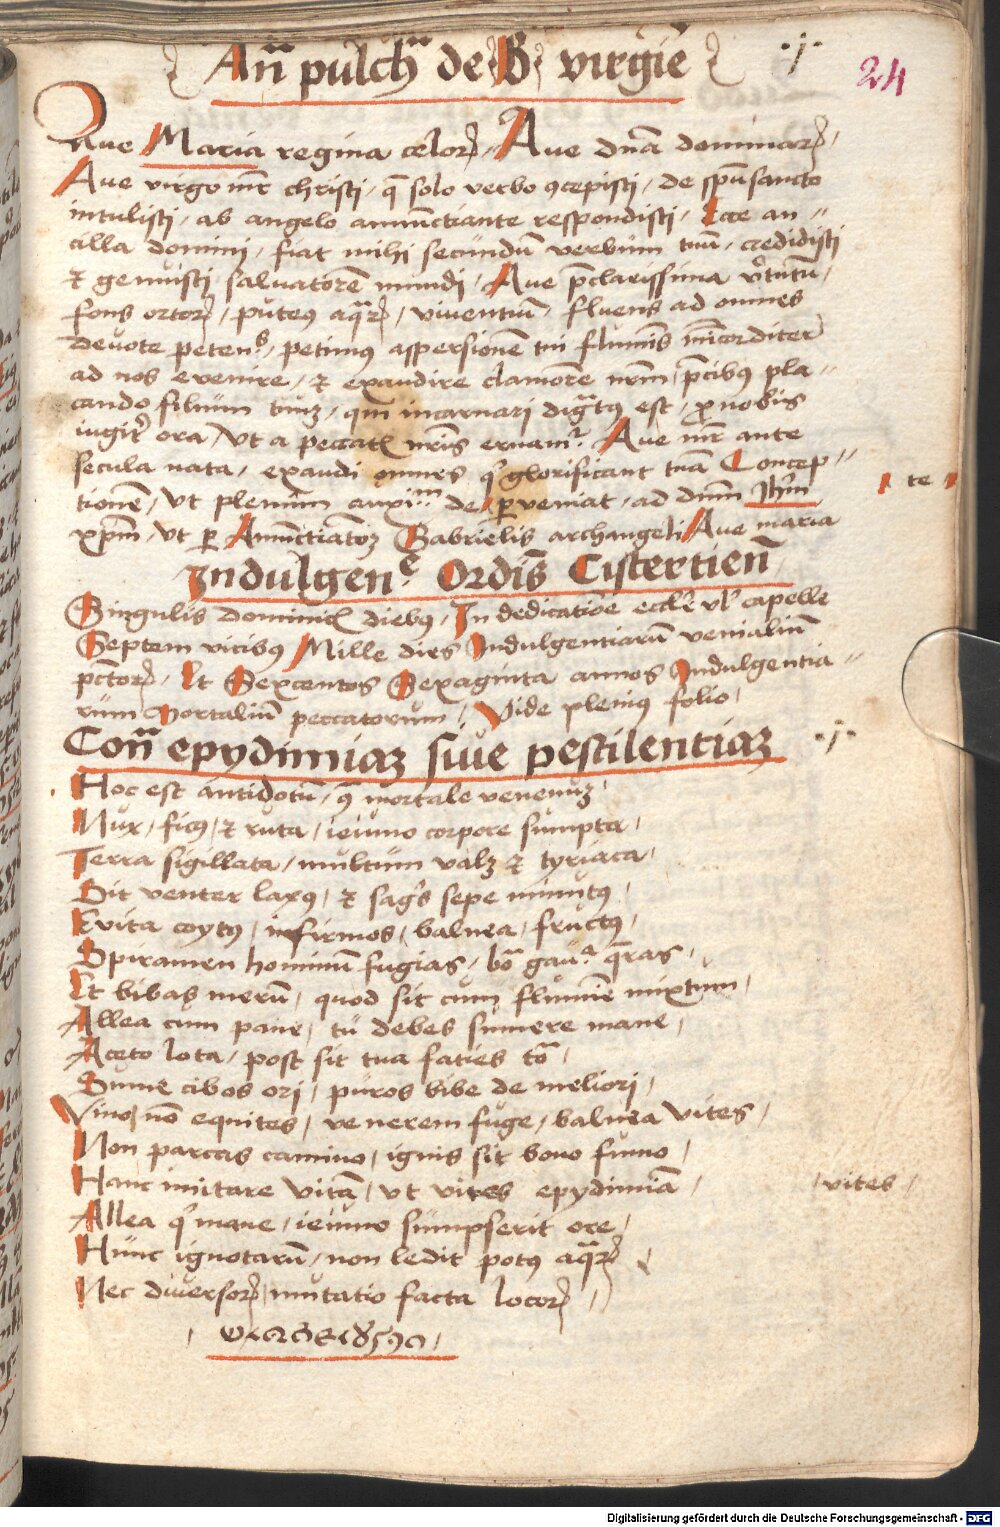 Añ pulch de B virgie · j ·
24
Aue Maria regina celor Aue dna dominar
Aue virgo mr christi q solo verbo 9cepisti de spu sancto
intulisti ab angelo annuctiante respondisti Ecce an
cilla domini fiat mihi secundu verbum tuu credidisti
& genuisti saluatore mundi Aue pclarissima vtutu
fons ortor puteus aqr viuentiu fluens ad omnes
deuote peten petimus asspersione tui flumis micorditer
ad nos euenire & exaudire clamore nrm pcibus pla
cando filium tuuz qui incarnari digtus est pro nobis
iugit ora Vt a peccatis nris eruam Aue mr ante
secula nata exaudi omnes q glorificant tua Concep
tione Vt plenum auxim de te perueniat ad dnm Jhm
te
xpm Vt per Annuctiatoz Gabrielis archangeli Aue maria
Indulgen Ordis Cistertien
Singulis dominicis diebus In dedicatioe eccle vl capelle
Septem vicibus Mille dies Indulgentiaru venialiu
pctor Et Sexcentos Sexaginta annos Indulgentia
rum Mortaliu peccatorum Vide plenius folio
Con epydimiaz siue pestilentiaz · j ·
Hoc est antidotu 9 mortale venenuz
Nux ficus & ruta ieiuno corpore sumpta
Terra sigillata multum valz & tyriaca
Sit venter laxus & sags sepe minutus
Euita coytus infirmos balnea fructus
Spiramen hominu fugias bo gau qras
Et bibas meru quod sit cum flumie mixtum
Allea cum pane tu debes sumere mane
Aceto lota post sit tua faties to
Sume cibos ori puros bibe de meliori
Vino no equites venerem fuge balnea Vites
Non parcas camino ignis sit bono fumo
Hanc imitare vita vt vites epydimia
vites
Allea q mane ieiuno sumpserit ore
Hunc ignotaru non ledit potus aqr
Nec diuersor mutatio facta locor